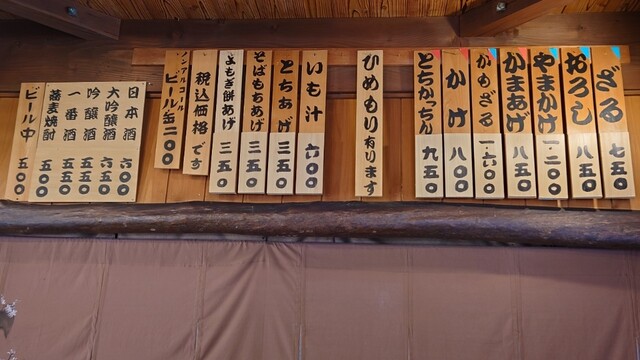 ざる 七五〇
おろし 八五〇
やまかけ 一、二〇〇
かまあげ 八五〇
かめざる 一、六〇〇
かけ 八〇〇
とちかっちん 九五〇
ひめもり有ります
いも汁 六〇〇
とちあげ 三五〇
そばもちあげ 三五〇
よもぎ餅あげ 三五〇
税込価格です
ノンアルコール
ビール缶 二〇〇
日本酒 六〇〇
大吟醸酒 六五〇
吟醸酒 五五〇
一番酒 五五〇
蕎麦焼酎 五五〇
ビール中 五五〇